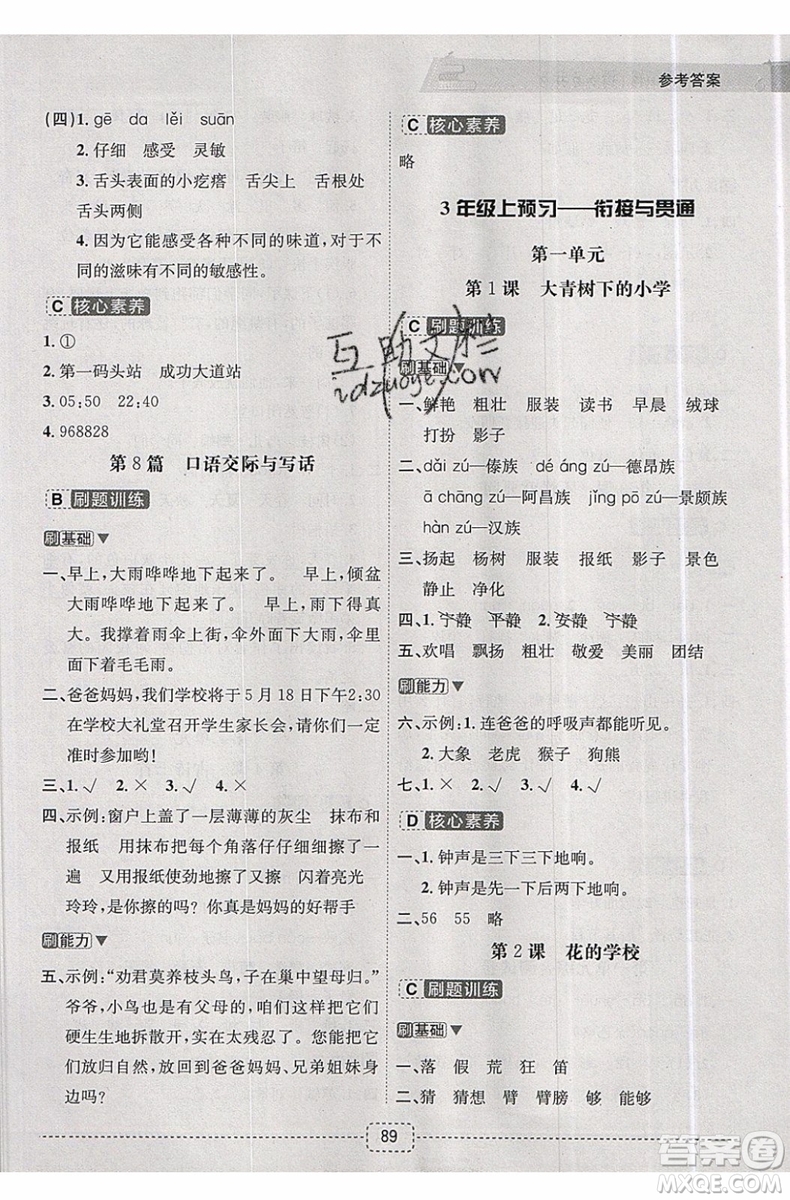 参考答案
(四)1. gē dɑ lěi suān
2. 仔细 感受 灵敏
3. 舌头表面的小疙瘩 舌尖上 舌根处
舌头两侧
4. 因为它能感受各种不同的味道,对不
同的滋味有不同的敏感性。
C 核心素养
1. ①
2. 第一码头站 成功大道站
3. 05:50 22:40
4. 968828
第8篇 口语交际与写话
B 刷题训练
刷基础
一、早上,大雨哗哗地下起来了。 早上,倾盆
大雨哗哗地下起来了。 早上,雨下得可真
大。我撑着雨伞上街,伞外面下大雨,伞里
面下着毛毛雨。
二、爸爸妈妈,我们学校将于5月18日下午2:30
在学校大礼堂召开学生家长会,请你们一定
准时参加哟!
三、1. √ 2. × 3. √ 4. √
四、示例:窗户上盖了一层薄薄的灰尘 抹布和
报纸 用抹布把每个角落仔仔细细擦了一
遍 又用报纸使劲地擦了擦 闪着亮光
玲玲,是你擦的吗?你真是妈妈的好帮手
刷能力
五、示例:“劝君莫养枝头鸟,子在巢中望母归。”
爷爷,小鸟也是有父母的,您把它们硬
生生地拆散开,实在太残忍了。您能把它
们放归自然,放回爸爸妈妈、兄弟姐妹身
边吗?
C 核心素养
略
3年级上预习——衔接与贯通
第一单元
第1课 大青树下的小学
C 刷题训练
刷基础
一、鲜艳 粗壮 服装 读书 早晨 绒球
打扮 影子
二、dǎi zú—傣族 dé áng zú—德昂族
ā chāng zú—阿昌族 jǐng pō zú—景颇族
hàn zú—汉族
三、扬起 杨树 服装 报纸 影子 景色
静止 净化
四、1. 宁静 平静 2. 安静 宁静
五、欢唱 飘扬 粗壮 敬爱 美丽 团结
刷能力
六、示例:1. 连爸爸的呼吸声都能听见。
2. 大象 老虎 猴子 狗熊
七、1. × 2. × 3. √ 4. √
D 核心素养
一、1. 钟声是三下三下地响。
2. 钟声先是一下一下地响。
二、56 55 略
第2课 花的学校
C 刷题训练
刷基础
一、落 假 荒 狂 笛
二、猜 猜想 臂 臂膀 够 能够
89
互助文栏
idzuoye.com
答案圈
MXQE.COM